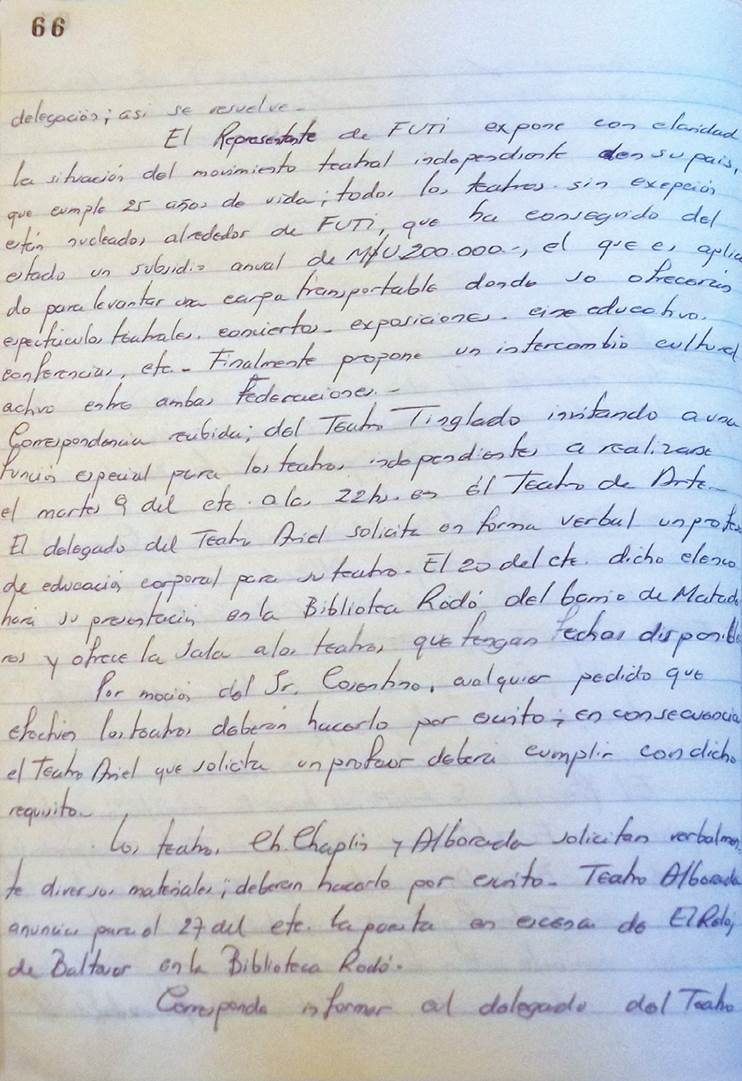 66
delegación; así se resuelve.-
El Representante de FUTI expone con claridad
la situación del movimiento teatral independiente en su pais,
que cumple 25 años de vida; todos los teatros sin exepción
están nucleados alrededor de FUTI, que ha conseguido del
estado un subsidio anual de 200.000.-, el que es aplica
do para levantar una carpa transportable donde se ofrecerán
espectáculos teatrales, conciertos - exposiciones - cine educativo.
conferencias, etc.- Finalmente propone un intercambio cultural
activo entre ambas Federaciones.-
Correspondencia recibida; del Teatro Tinglado invitando a una
función especial para los teatros independientes a realizarse
el martes 9 del cte. a las 22h. en el Teatro de Arte.-
El delegado del Teatro Ariel solicita en forma verbal un profesor
de educación corporal para su teatro. El 20 del cte. dicho elenco
hará su presentación en la Biblioteca Rodó del barrio de Matade
ros y ofrece la sala a los teatros que tengan fechas disponibles
Por moción del Sr. Cosentino, cualquier pedido que
efectúen los teatros deberán hacerlo por escrito; en consecuencia
el Teatro Ariel que solicita un profesor deberá cumplir con dicho
requisito.-
Los teatros Ch. Chaplin y Alborada solicitan verbalmen
te diversos materiales; deberán hacerlo por escrito. Teatro Alborada
anuncia para el 27 del cte. la puesta en escena de El Reloj
de Baltasar en la Biblioteca Rodó.
Corresponde informar al delegado del Teatro